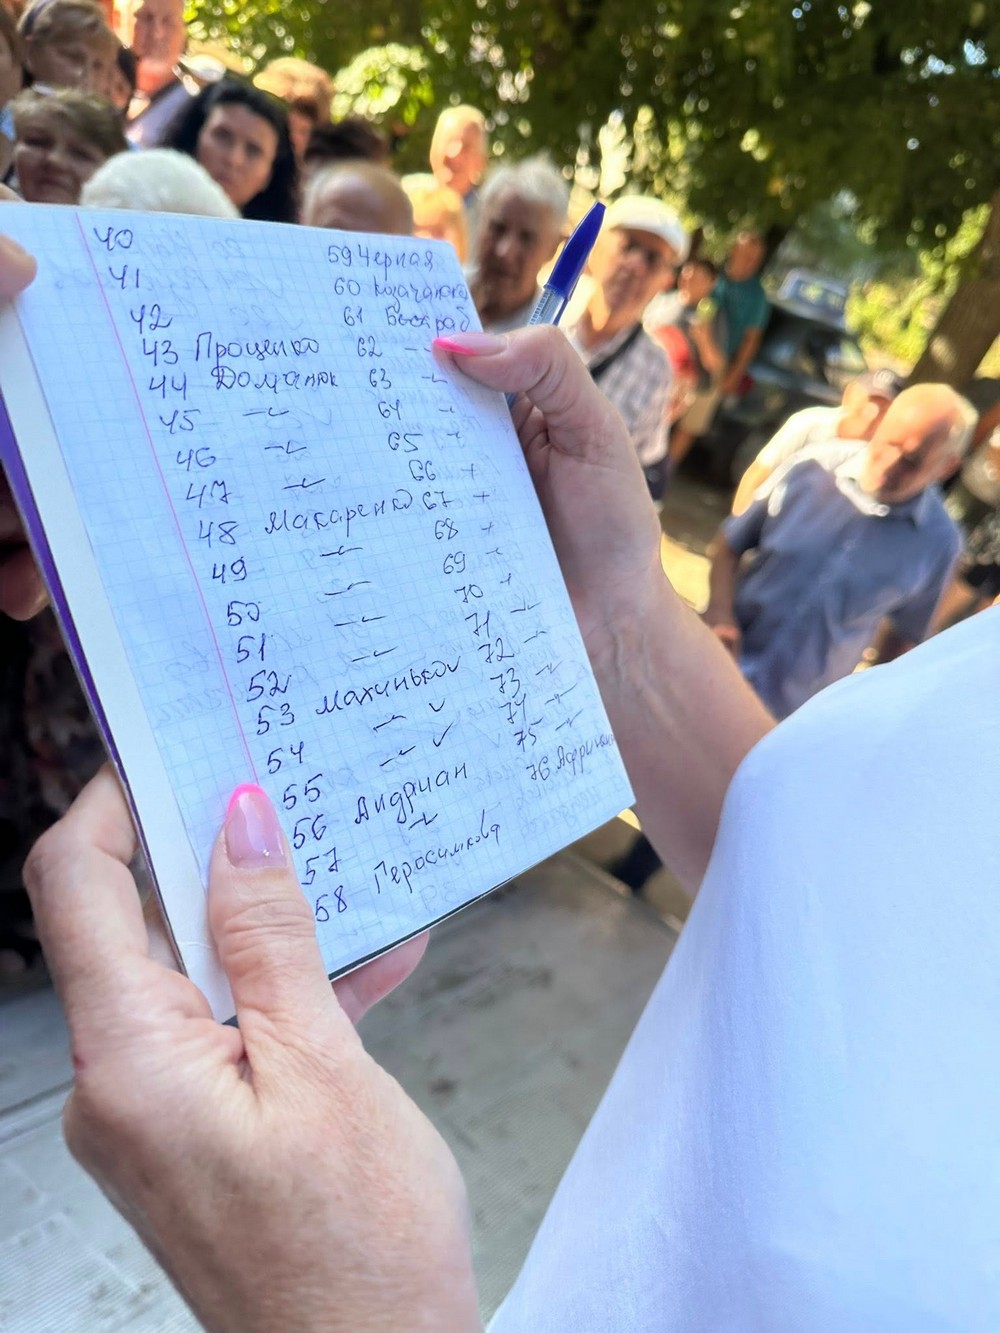 40
41
42
43 Проценко
44 Доманюк
45 -〃-
46 -〃-
47 -〃-
48 Макаренко
49 -〃-
50 -〃-
51 -〃-
52 -〃-
53 Махинько ✓
54 -〃- ✓
55 -〃- ✓
56 Андриан
57 -〃-
58 Герасимова
59 Черная
60
61
62 -〃-
63 -〃-
64 -〃-
65 -〃-
66 -〃-
67 -〃-
68 -〃-
69 -〃-
70 -〃-
71 -〃-
72 -〃-
73 -〃-
74 -〃-
75 -〃-
76